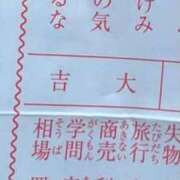 けみ
の気
るな
大吉
失物
旅行
たびだち
商売
あきない
学問
がくもん
相場
そうば